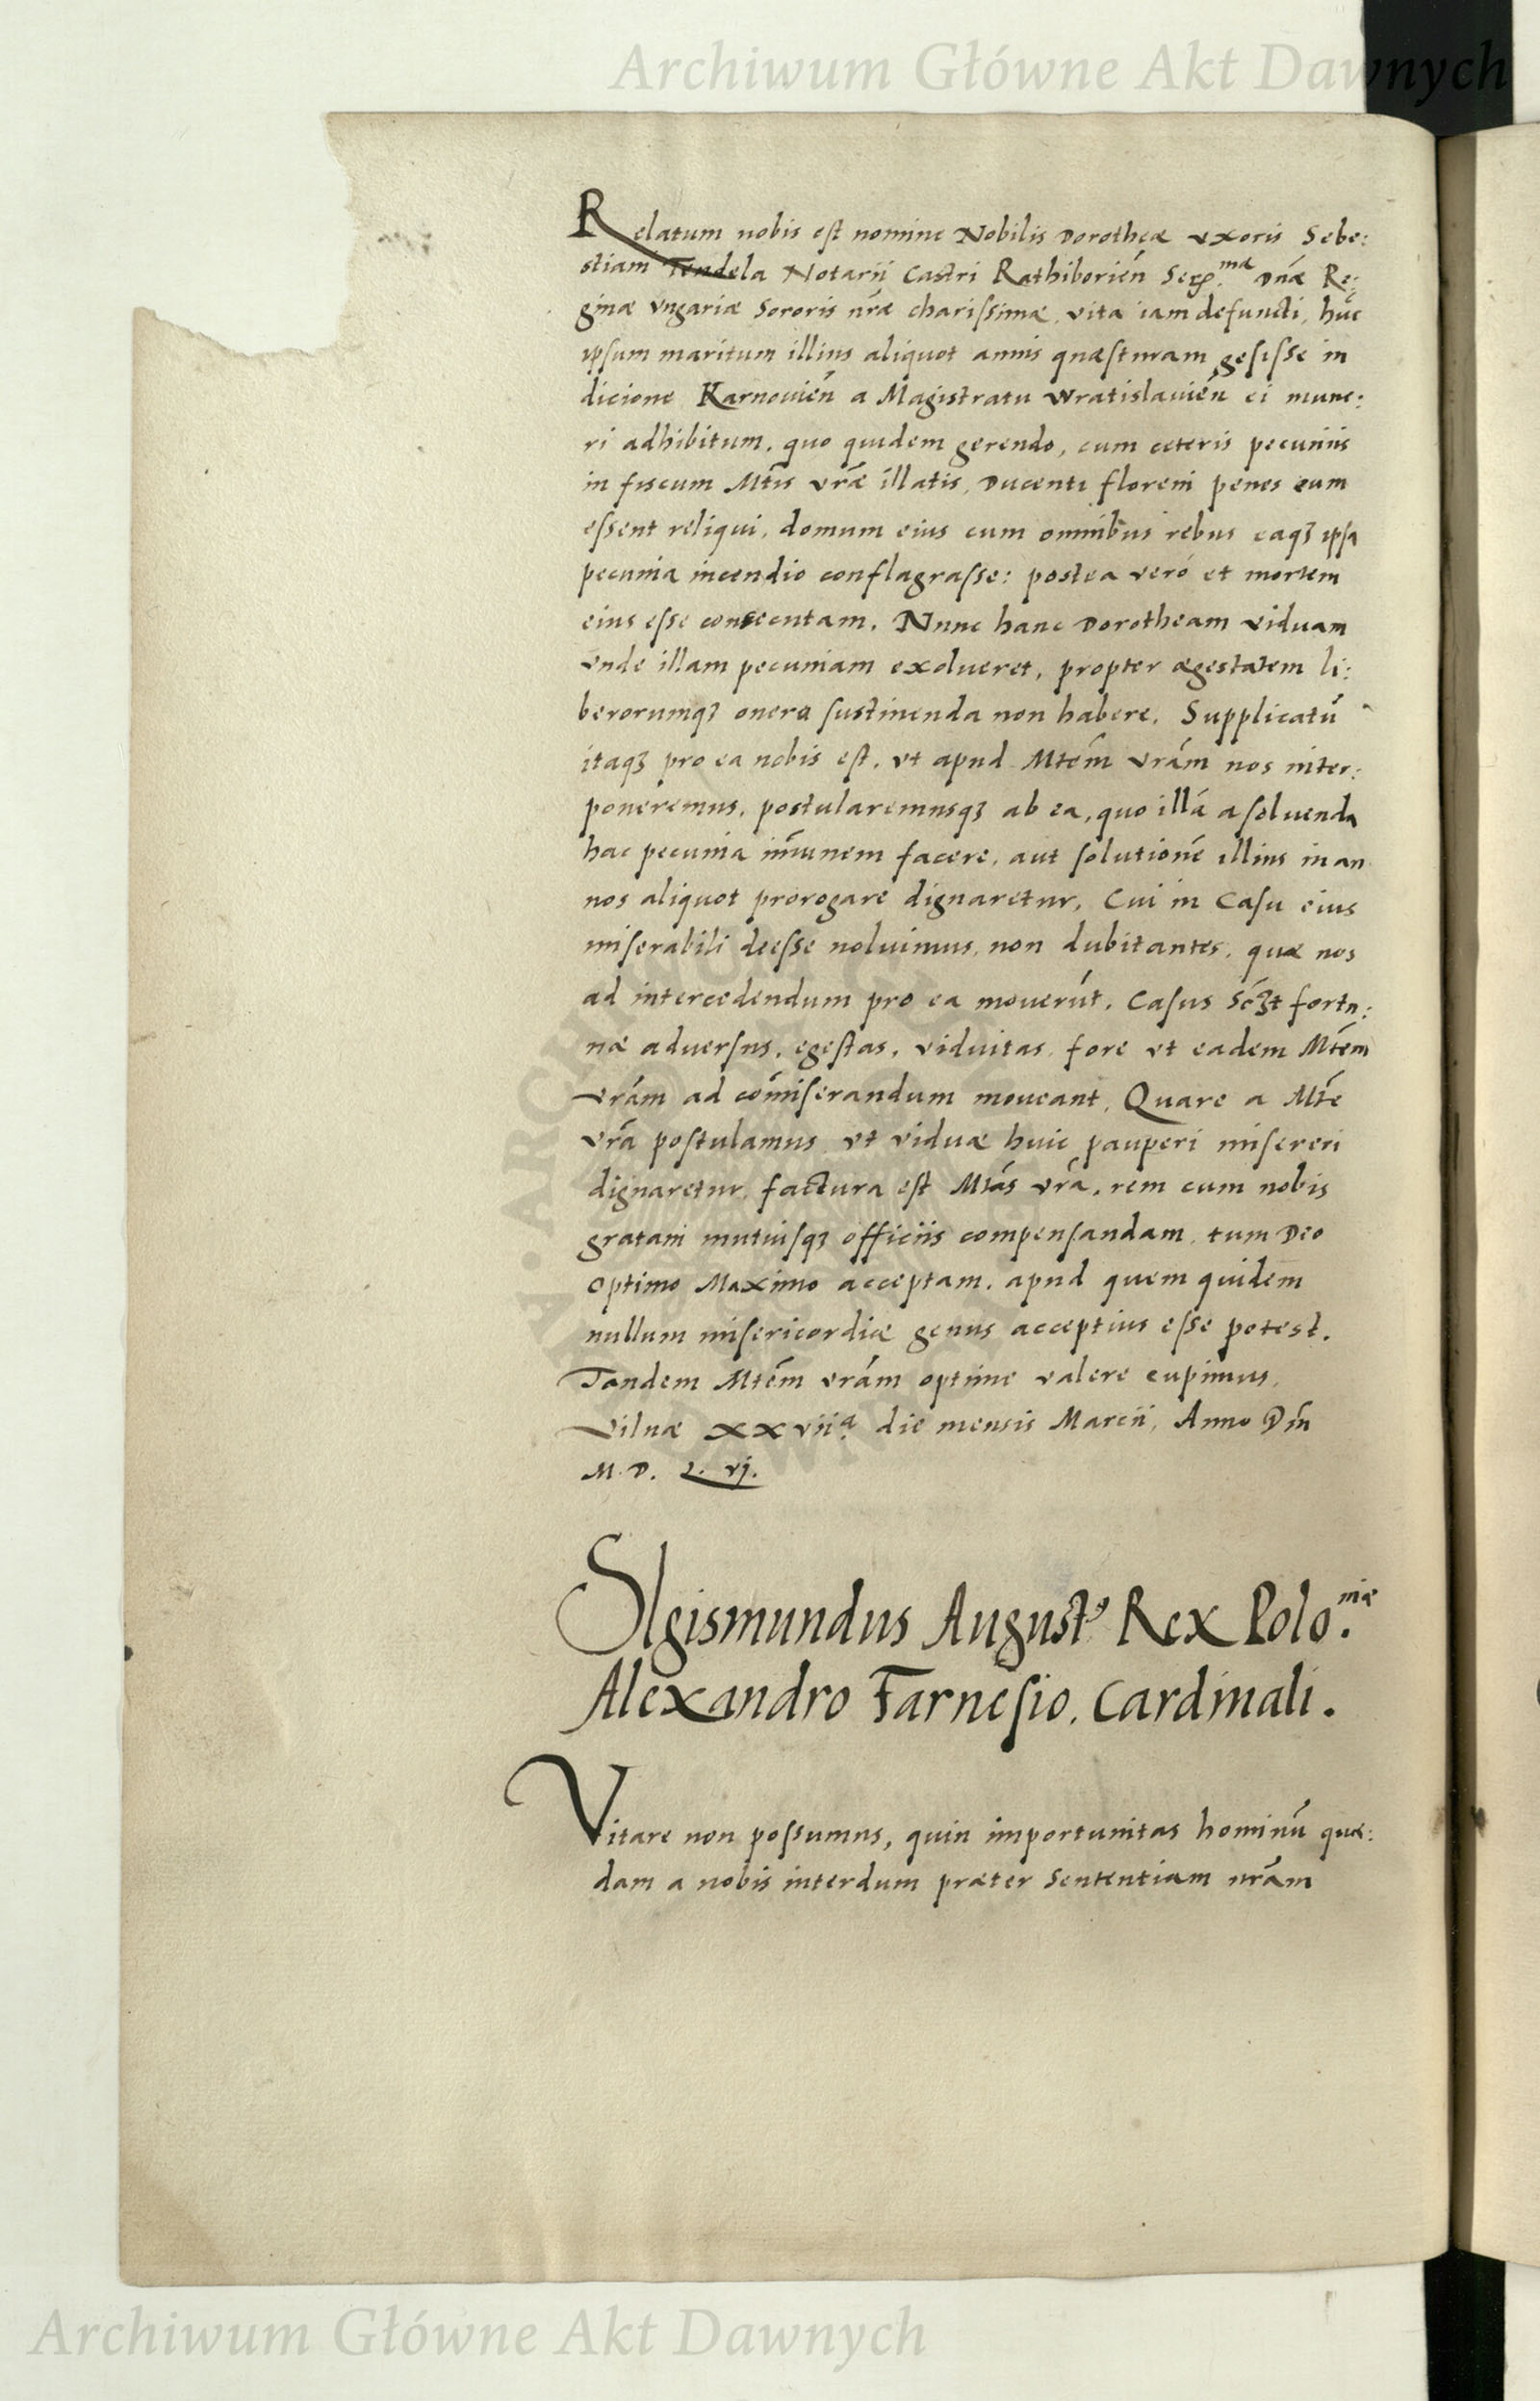 Archiwum Główne Akt Dawnych
Relatum nobis est nomine Nobilis Dorotheæ vxoris Sebe:
stiam Tendela Notarii Castri Rathiborień Serᵐᵃᵉ Dnæ Re:
ginæ Vngariæ Sororis nr̃æ charissimæ, vita iam defuncti, hũc
ipsum maritum illius aliquot annis quæsturam gesisse in
dicione Karnouień a Magistratu Wratislauień ei mune:
ri adhibitum, quo quidem gerendo, cum ceteris pecuniis
in fiscum Mtis vr̃æ illatis, Ducenti floreni penes eum
essent reliqui, domum eius cum omnibus rebus eaqꝫ ipsa
pecunia incendio conflagrasse: postea veró et mortem
eius esse consecutam. Nunc hanc Dorotheam viduam
vnde illam pecuniam exolueret, propter ægestatem li:
berorumqꝫ onera sustinenda non habere. Supplicatũ
itaqꝫ pro ea nobis est, vt apud Mtem̃ vrãm nos inter:
poneremus, postularemusqꝫ ab ea, quo illã a soluenda
hac pecunia im̃unem facere, aut solutionẽ illius in an
nos aliquot prorogare dignaretur, Cui in Casu eius
miserabili deesse noluimus, non dubitantes, quæ nos
ad intercedendum pro ea mouerũt, Casus fortu:
næ aduersus, egestas, viduitas, fore vt eadem Mtem̃
vrãm ad com̃iserandum moueant, Quare a Mtẽ
vrã postulamus, vt viduæ huic pauperi misereri
dignaretur, factura est Mtãs vrã, rem cum nobis
gratam mutuisqꝫ officiis compensandam, tum Deo
Optimo Maximo acceptam, apud quem quidem
nullum misericordiæ genus acceptius esse potest.
Tandem Mtem̃ vrãm optime valere cupimus,
Vilnæ xxvijᵃ die mensis Marcii, Anno Dñi
M. D. L. vj.
SIgismundus August⁹ Rex Polo.ⁿⁱᵃᵉ
Alexandro Farnesio, Cardinali.
Vitare non possumus, quin importunitas hominũ quæ:
dam a nobis interdum præter sententiam nrãm
Archiwum Główne Akt Dawnych